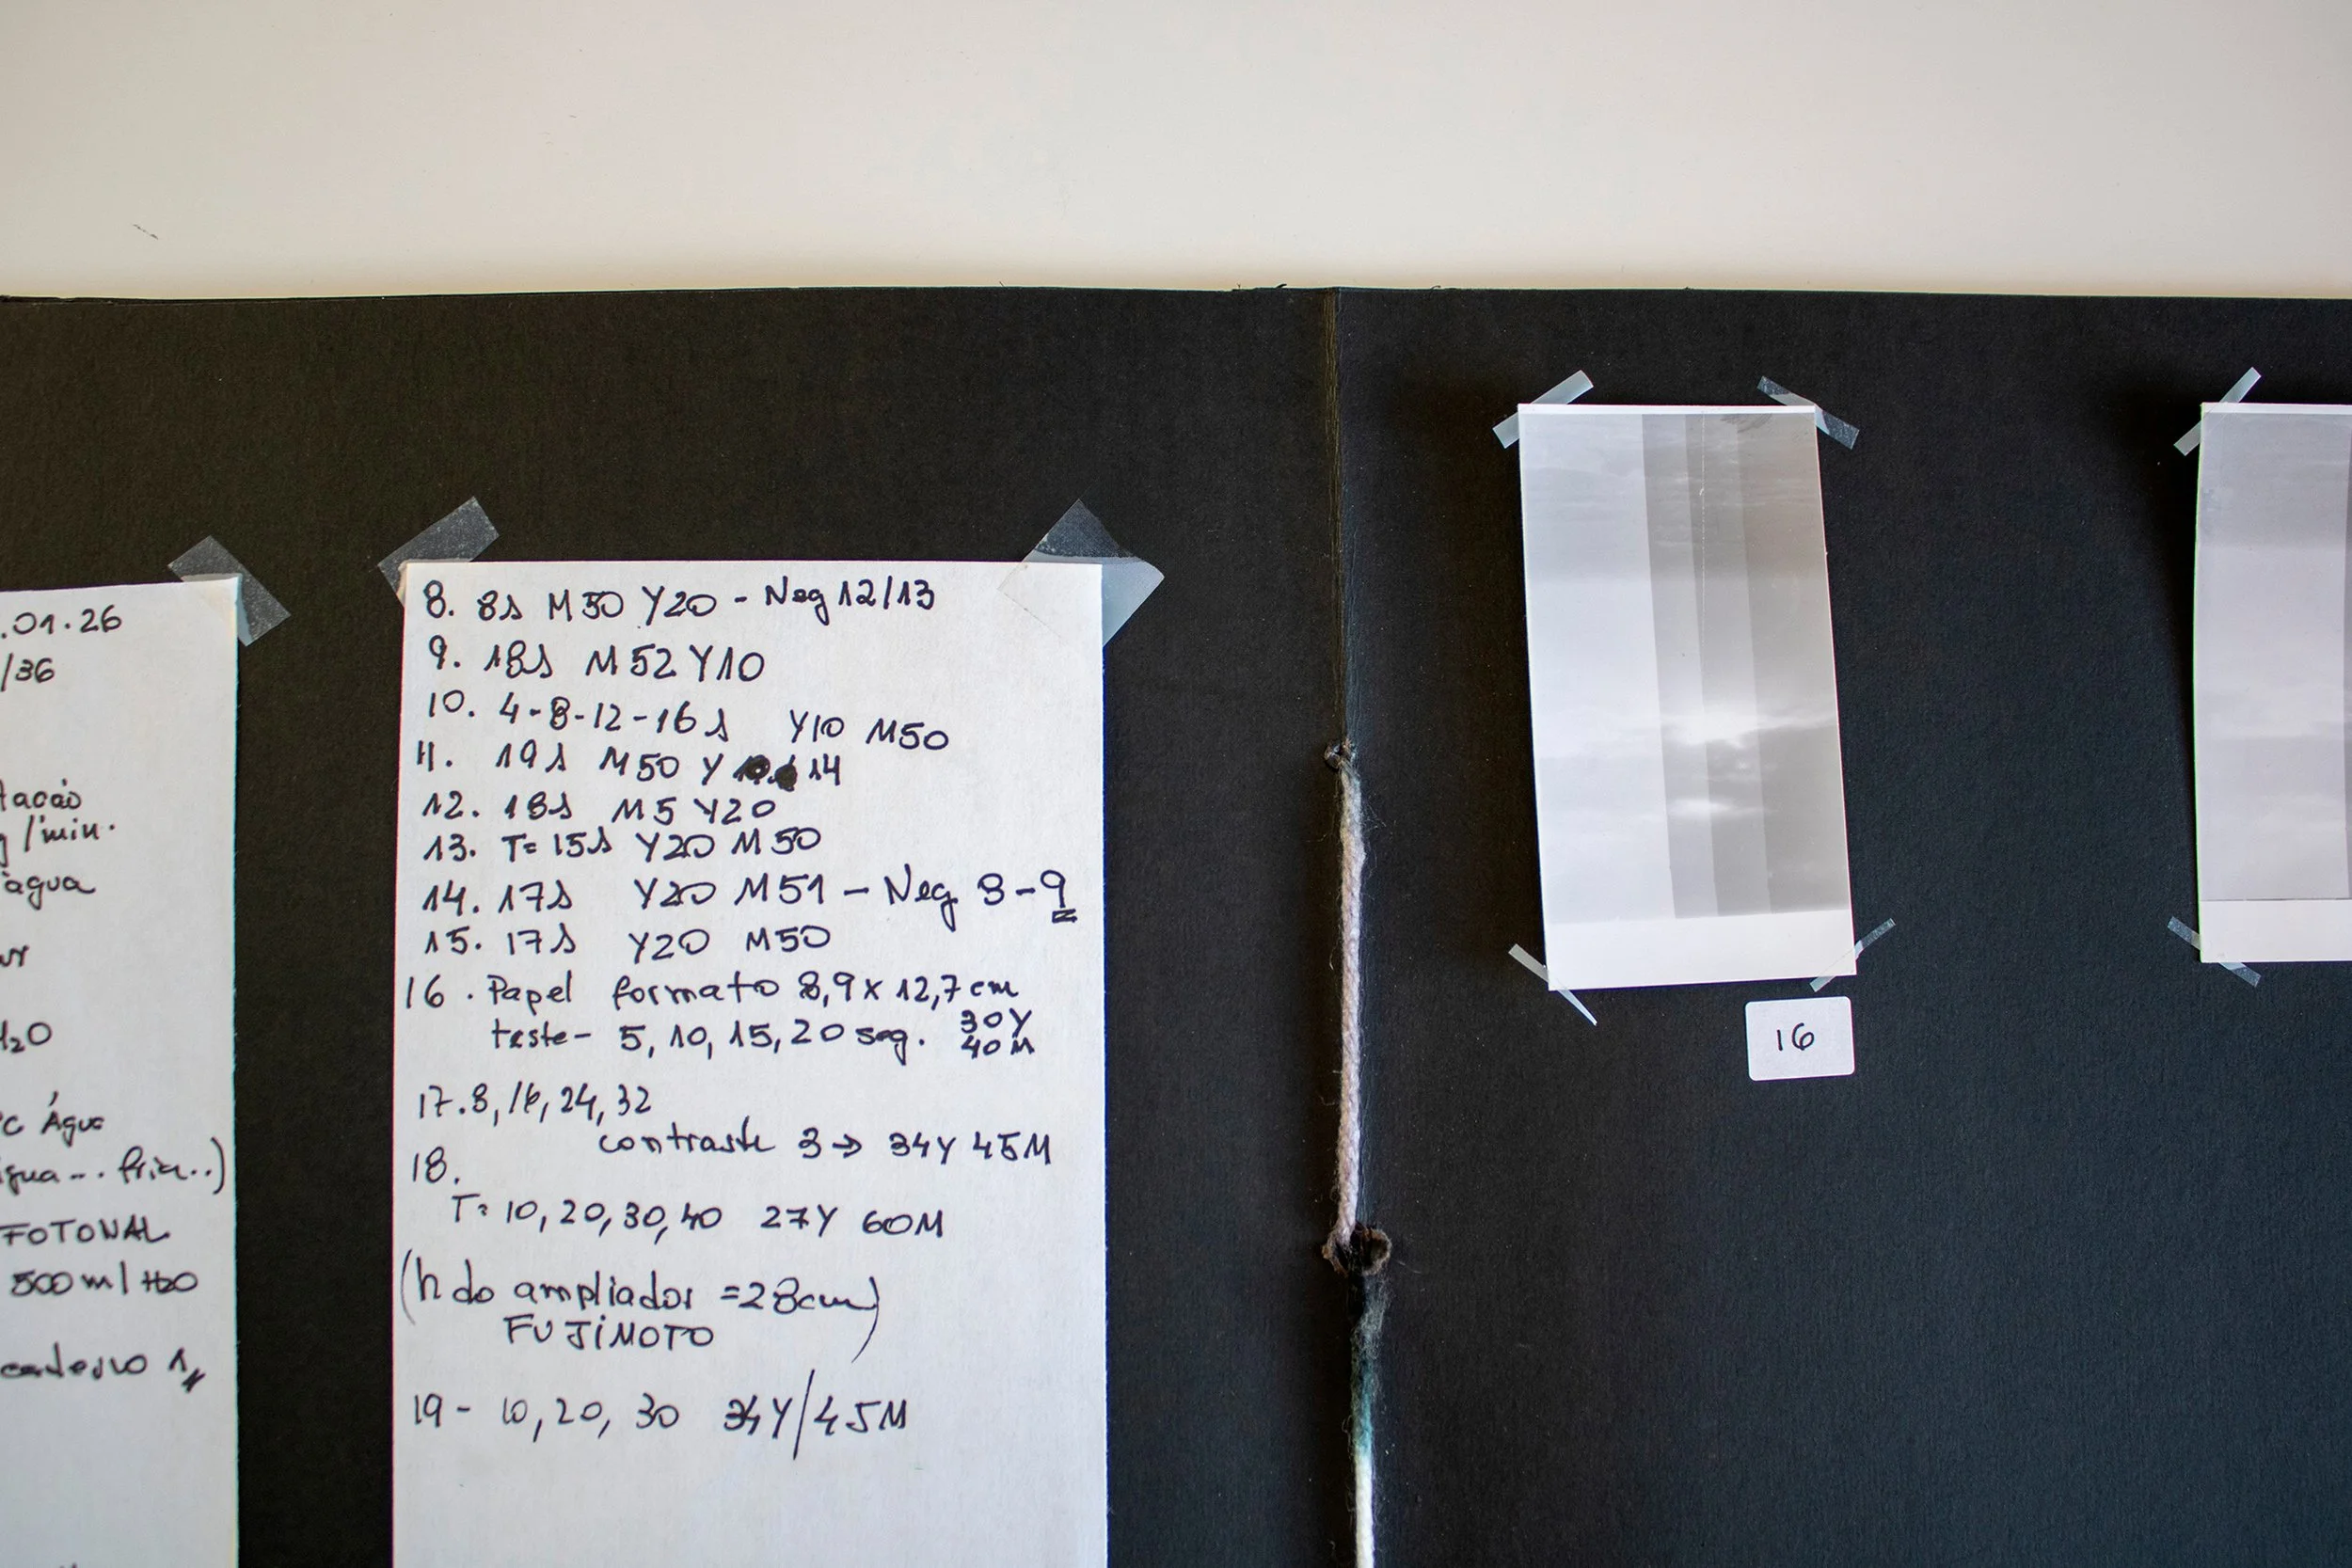 .01.26
/36
tacão
/min.
água
H2O
Água
FOTONAL
500 ml H2O
caderno 1
8. 8s M50 Y20 - Neg 12/13
9. 18s M52 Y10
10. 4-8-12-16 s Y10 M50
11. 19s M50 Y 14
12. 18s M5 Y20
13. T= 15s Y20 M50
14. 17s Y20 M51 - Neg 8-9
15. 17s Y20 M50
16. Papel formato 8,9 x 12,7 cm
teste - 5, 10, 15, 20 seg. 30Y
40M
17. 8, 16, 24, 32
contraste 3 → 34Y 45M
18.
T= 10, 20, 30, 40 27Y 60M
(h do ampliador = 28cm)
FUJIMOTO
19 - 10, 20, 30 34Y/45M
16